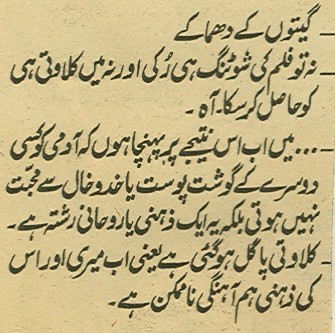 _ گیتوں کے دھماکے
_ نہ تو فلم کی شوٹنگ ہی رُکی اور نہ میں کلاوتی ہی
کو حاصل کرسکا۔ آہ۔
_ ... میں اب اس نتیجے پر پہنچا ہوں کہ آدمی کو کسی
دوسرے کے گوشت پوست یا خدوخال سے محبت
نہیں ہوتی بلکہ یہ ایک ذہنی یا روحانی رشتہ ہے۔
_ کلاوتی پاگل ہوگئی ہے یعنی اب میری اور اس
کی ذہنی ہم آہنگی ناممکن ہے۔